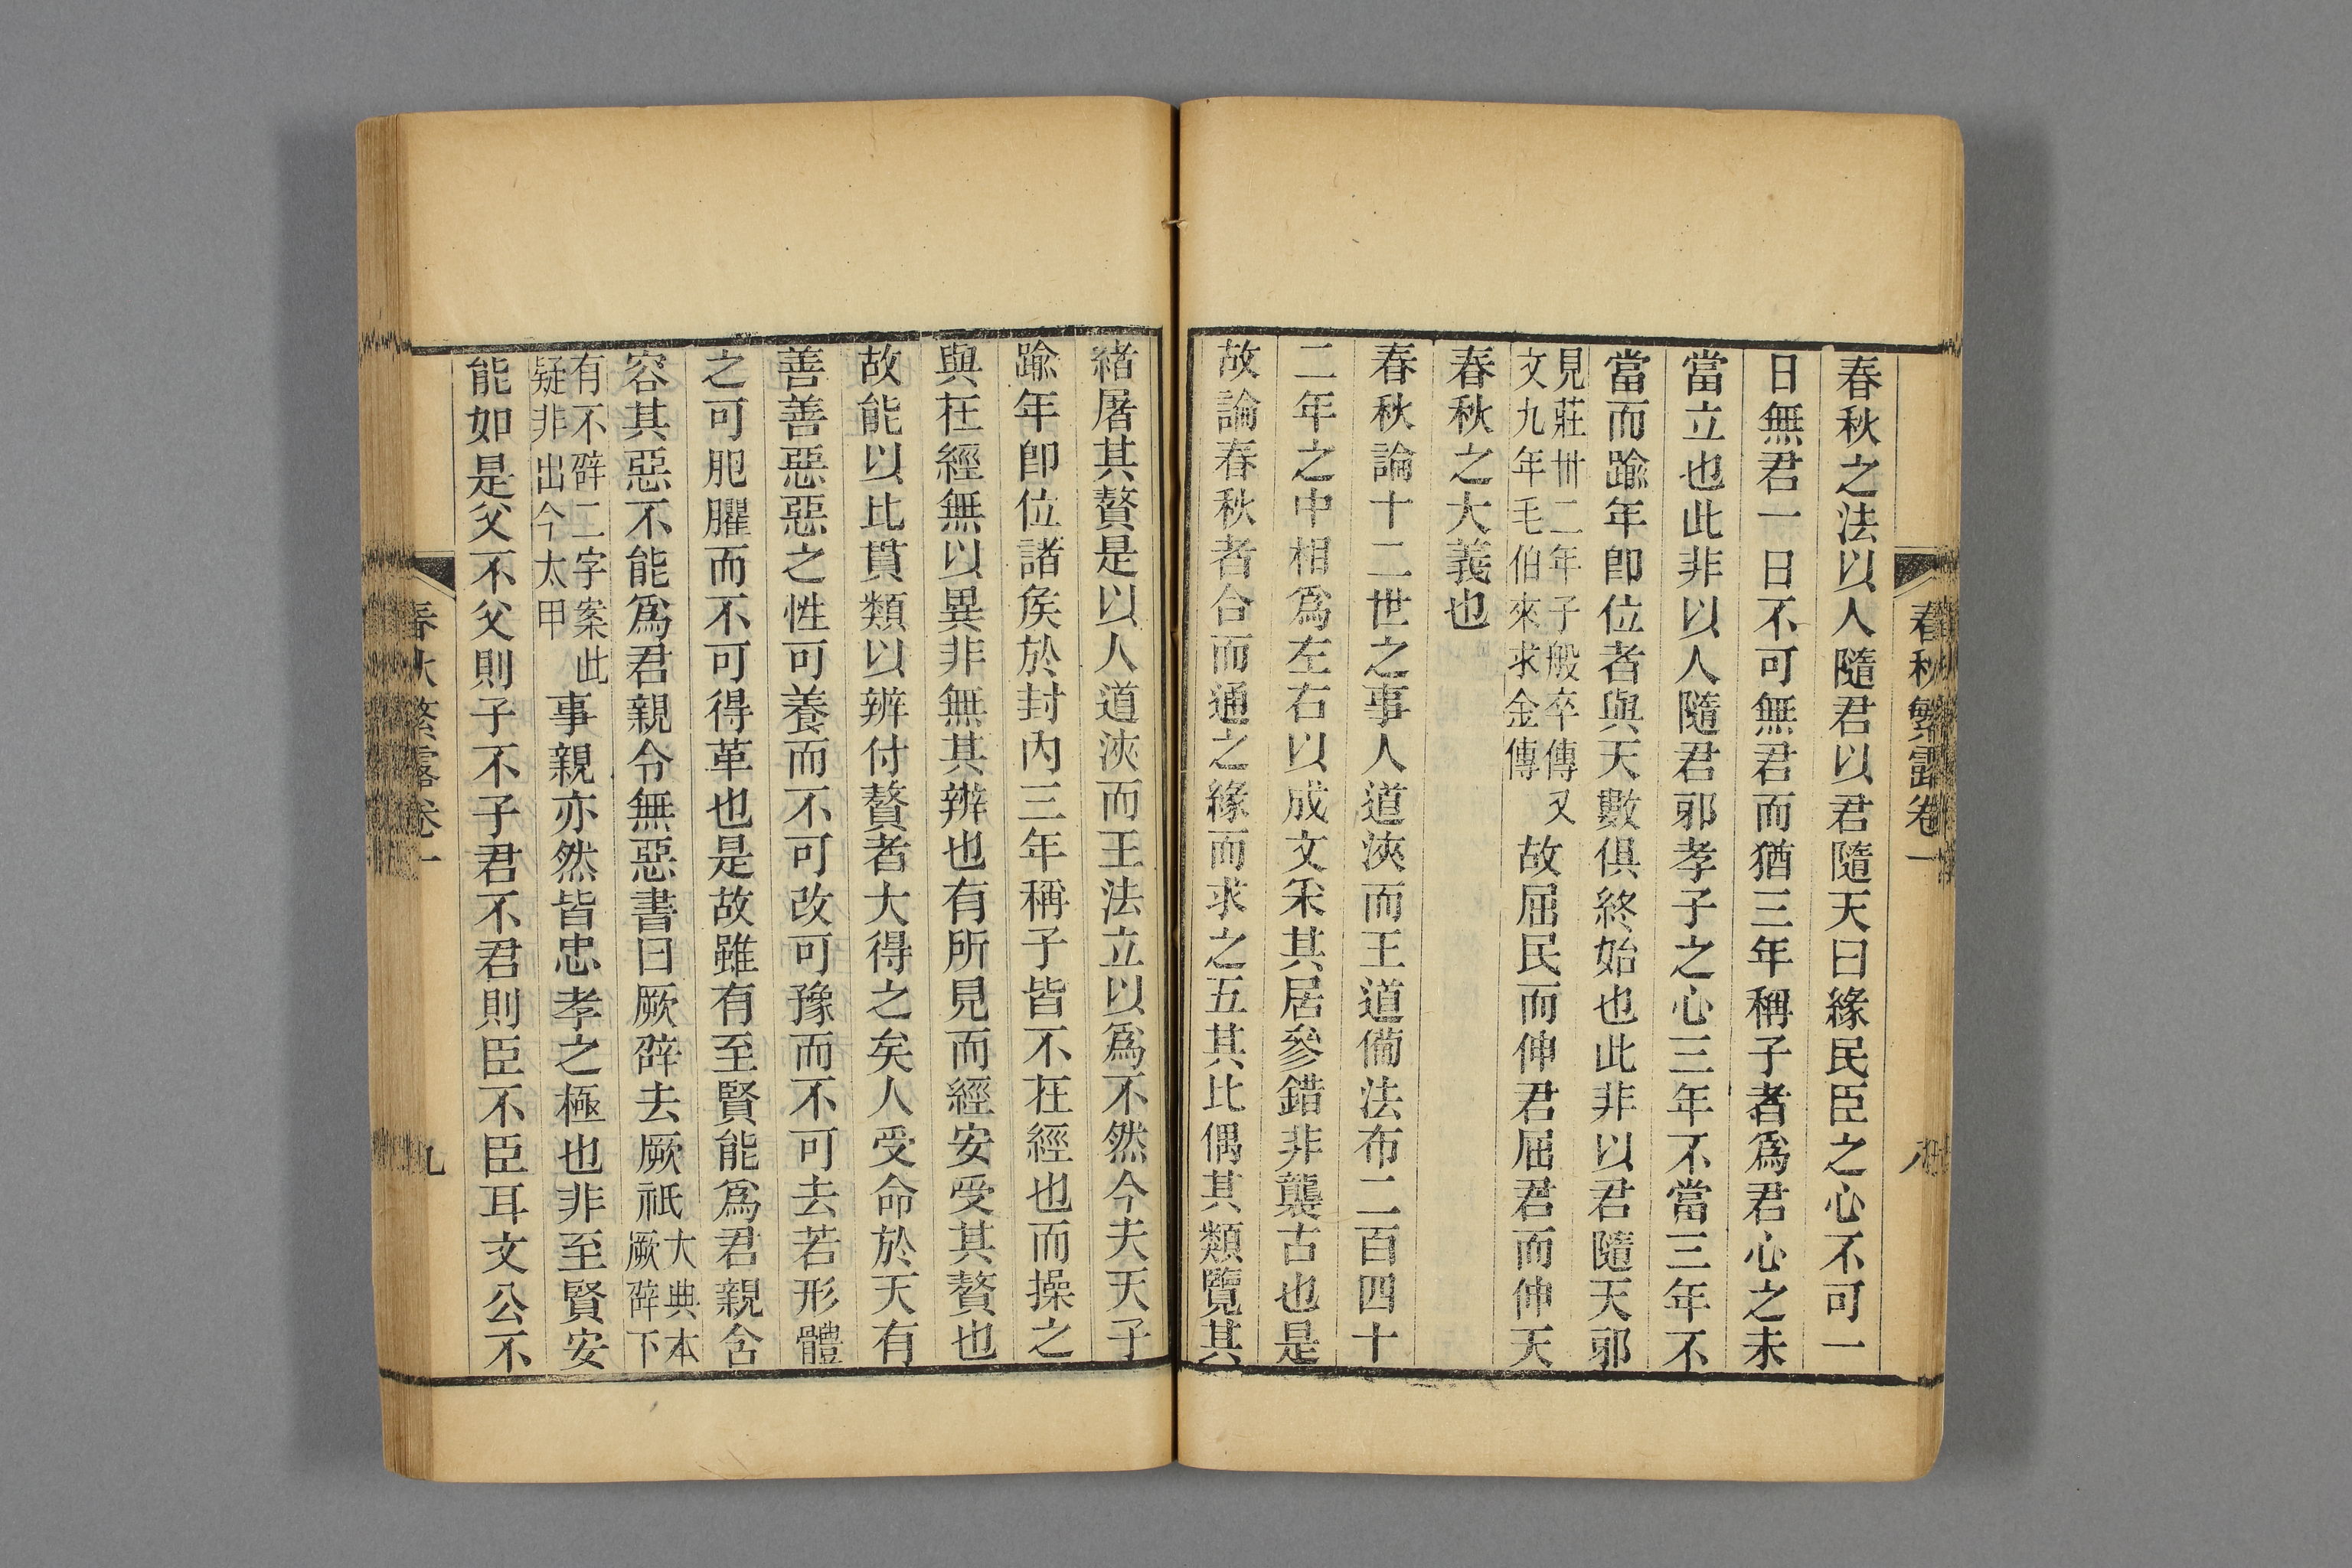 春秋繁露卷一
八
春秋之法以人隨君以君隨天曰緣民臣之心不可一
日無君一日不可無君而猶三年稱子者爲君心之未
當立也此非以人隨君郭孝子之心三年不當三年不
當而踰年卽位者與天數俱終始也此非以君隨天郭
見莊卅二年子般卒傳又
文九年毛伯來求金傳
故屈民而伸君屈君而伸天
春秋之大義也
春秋論十二世之事人道浹而王道僃法布二百四十
二年之中相爲左右以成文采其居參錯非襲古也是
故論春秋者合而通之緣而求之五其比偶其類覽其
緒屠其贅是以人道浹而王法立以爲不然今夫天子
踰年卽位諸矦於封内三年稱子皆不在經也而操之
與在經無以異非無其辨也有所見而經安受其贅也
故能以比貫類以辨付贅者大得之矣人受命於天有
善善惡惡之性可養而不可改可豫而不可去若形體
之可肥臞而不可得革也是故雖有至賢能爲君親含
容其惡不能爲君親令無惡書曰厥辟去厥祗
大典本
厥辟下
有不辟二字案此
疑非出今太甲
事親亦然皆忠孝之極也非至賢安
能如是父不父則子不子君不君則臣不臣耳文公不
春秋繁露卷一
九